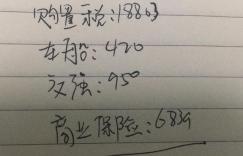 购置税:18803
车船:420
交强:950
商业保险:6839